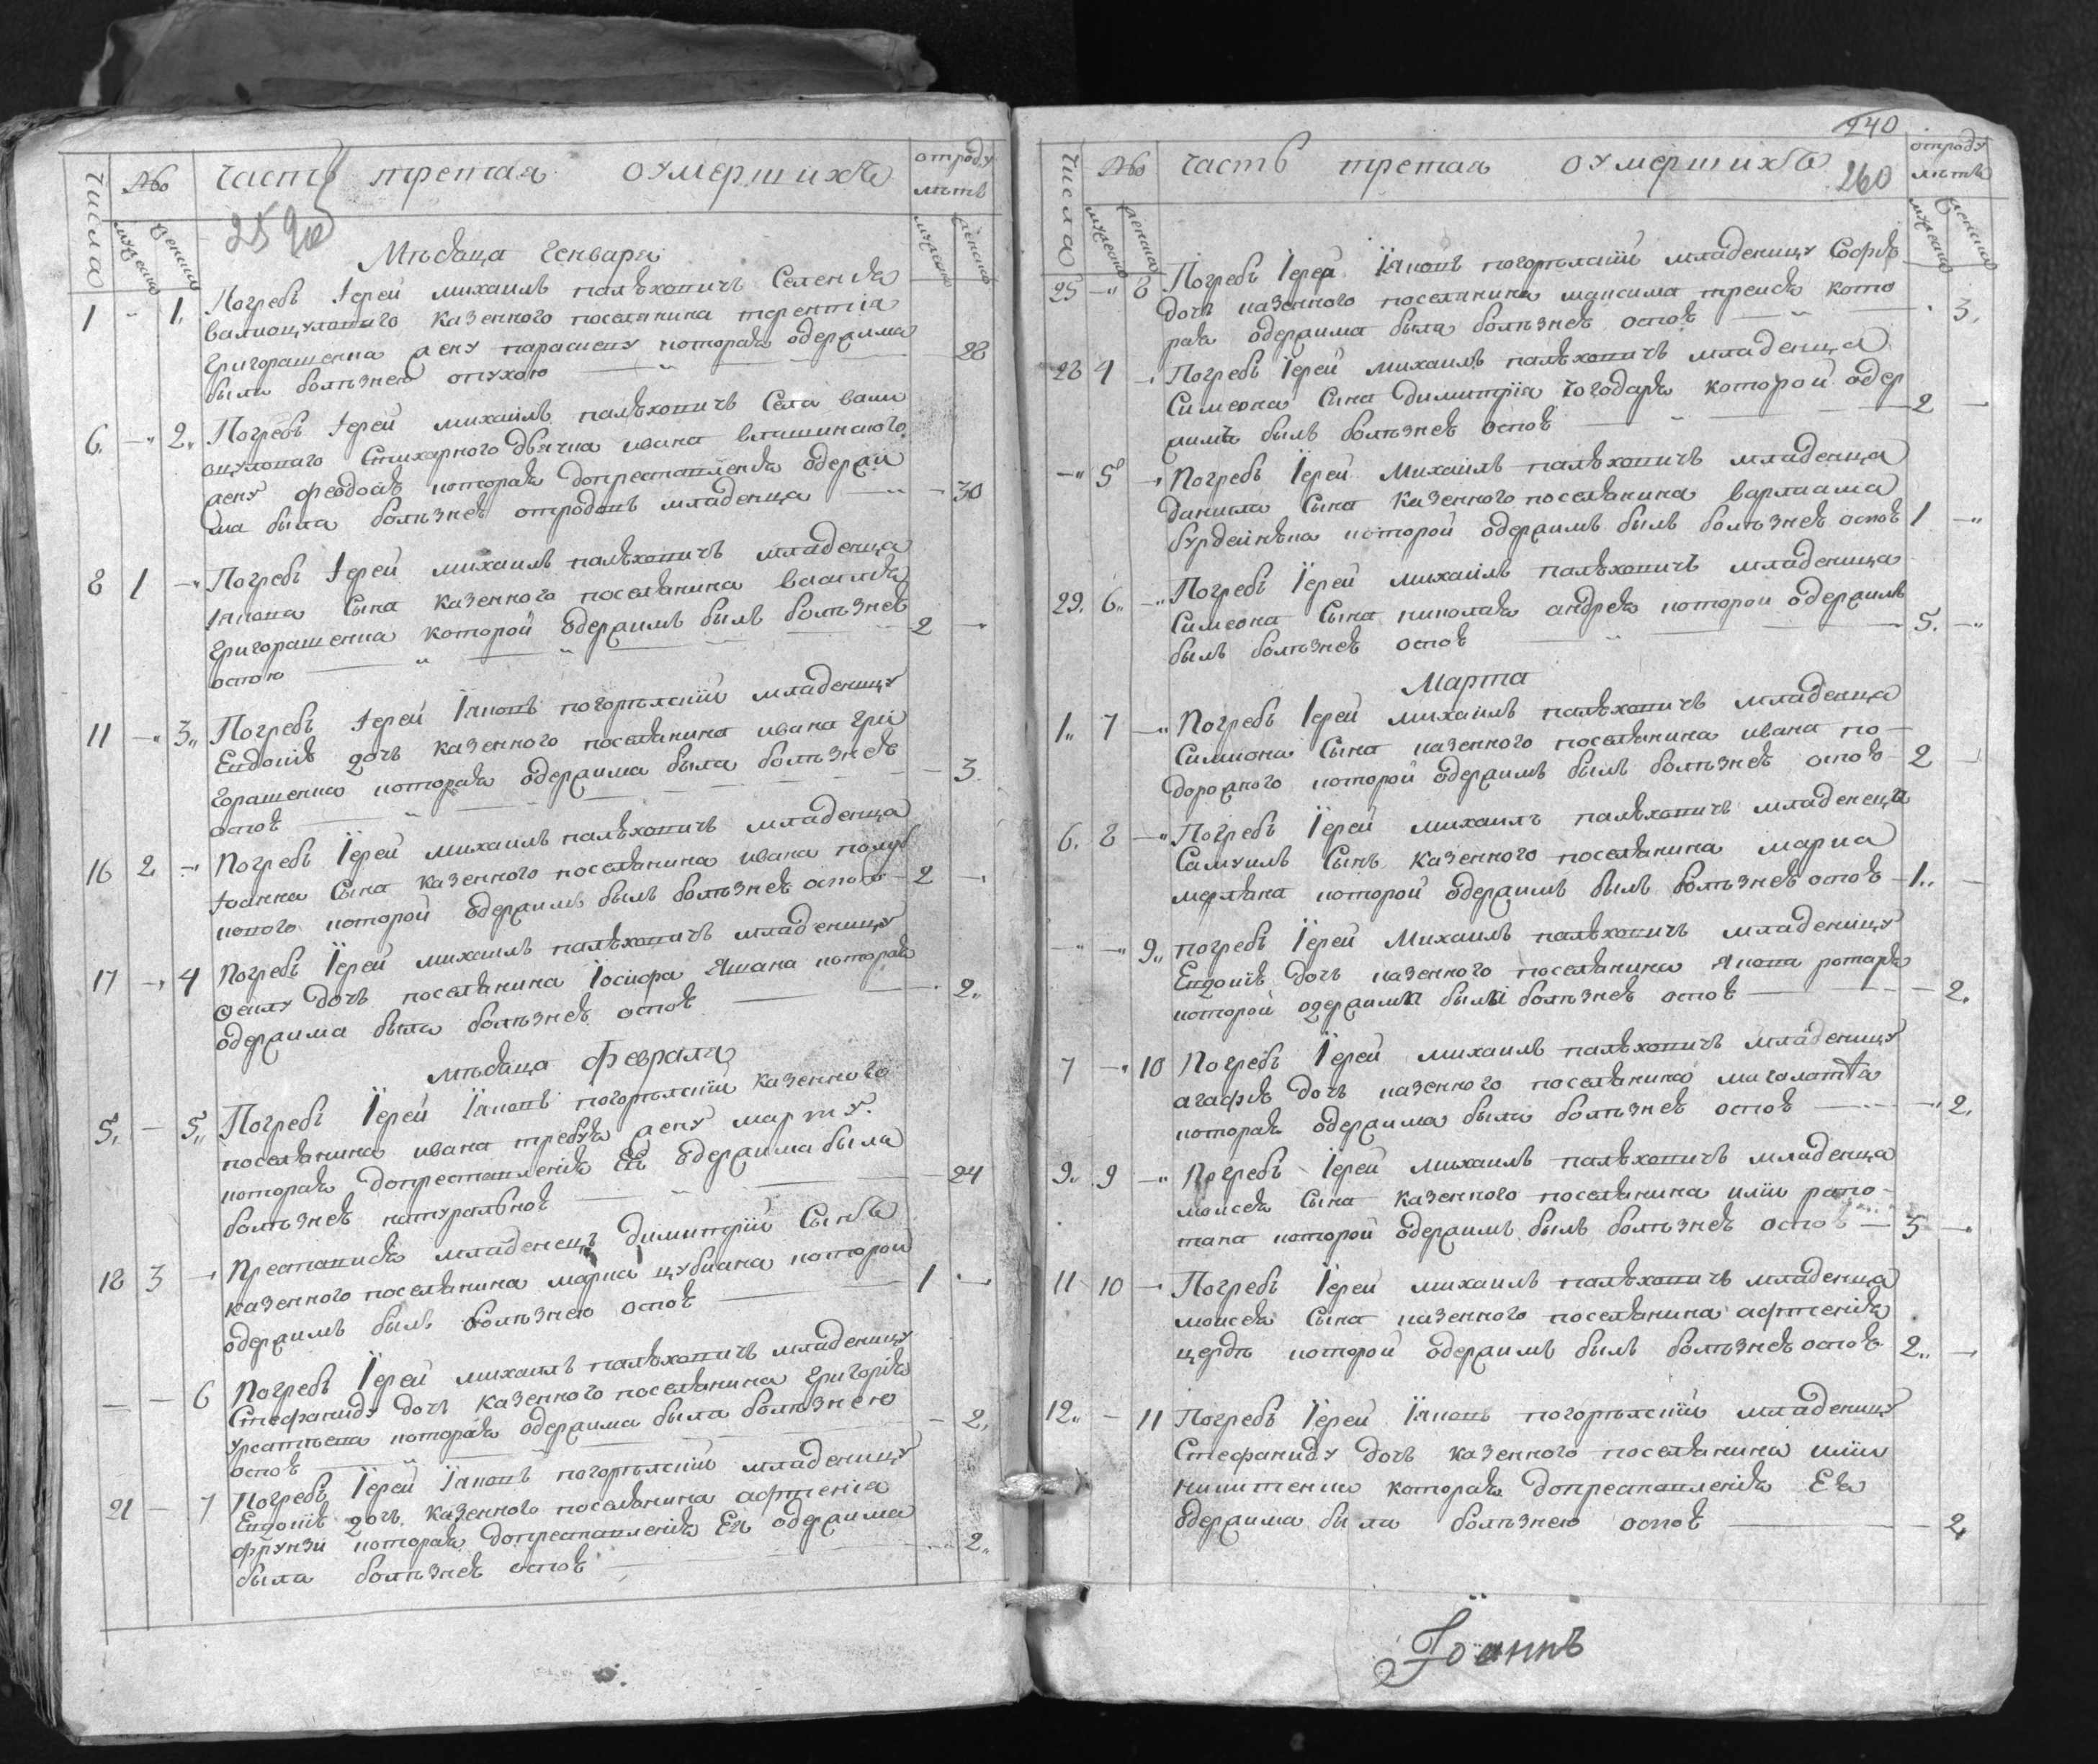 числа
№
часть третая оумершихъ
отроду
лѣтъ
мужеска
женска
мужеска
женска
Мѣсяца Генваря
1 " 1. Погребъ Іерей михаилъ палѣховичъ Селенія
валиоцуловаго казенного поселянина терентіа
Григорашенка жену параскеву которая одержима
была болѣзнею опухою — " — 28
6. —" 2" Погребъ Іерей михаилъ палѣховичъ Села вали
оцуловаго Стихарного Дьячка ивана влашинского
жену феодосію которая допреставленія одержи
ма была болѣзнею отродовъ младенца — " — 30
8 1 —" Погребъ Іерей михаилъ палѣховичъ младенца
Іякова Сына казенного поселянина василія
Григорашенка которой одержимъ былъ болѣзнею
оспою — " — " — 2 —
11 —" 3" Погребъ Іерей Іяковъ погорѣлскій младеницу
Евдокію дочь казенного поселянина ивана Гри
горашенка которая одержима была болѣзнею
оспою — 3
16 2 —" Погребъ Іерей михаилъ палѣховичъ младенца
Іоанна Сына казенного поселянина ивана
которой одержимъ былъ болѣзнею оспою — 2 —
17 —" 4 Погребъ Іерей михаилъ палѣховичъ младеницу
дочь поселянина Іосифа которая
одержима была болѣзнею оспою — 2"
мѣсяца февраля
5. — 5" Погребъ Іерей Іяковъ погорѣлскій казенного
поселянина ивана жену марту.
которая допреставленія Ея одержима была
болѣзнею натуралною — " — 24
18 3 —" Преставися младенецъ Димитрій Сынъ
казенного поселянина марка которой
одержимъ былъ болѣзнею оспою — 1 —
— — 6 Погребъ Іерей михаилъ палѣховичъ младеницу
Стефаниду дочь казенного поселянина Григорія
которая одержима была болѣзнею
оспою — " — 2"
21 — 7 Погребъ Іерей Іяковъ погорѣлскій младеницу
Евдокію дочь казенного поселянина афтенія
фрунзи которая допреставленія Ея одержима
была болѣзнею оспою — 2"
240
числа
№
часть третая оумершихъ
260
отроду
лѣтъ
мужеска
женска
мужеска
женска
25 —" 8 Погребъ Іерей Іяковъ погорѣлскій младеницу Софію
дочь казенного поселянина максима кото
рая одержима была болѣзнею оспою — " — 3.
28 4 —" Погребъ Іерей михаилъ палѣховичъ младенца
Симеона Сына димитрія которой одер
жимъ былъ болѣзнею оспою — " — 2 —
—" 5 —" Погребъ Іерей Михаилъ палѣховичъ младенца
Данила Сына казенного поселянина варлаама
которой одержимъ былъ болѣзнею оспою 1 —"
29. 6" —" Погребъ Іерей михаилъ палѣховичъ младенца
Симеона Сына николая андрея которой одержимъ
былъ болѣзнею оспою — " — 5. —"
Марта
1" 7 —" Погребъ Іерей михаилъ палѣховичъ младенца
Симиона Сына казенного поселянина ивана по-
дорожного которой одержимъ былъ болѣзнею оспою 2 —
6. 8 —" Погребъ Іерей михаилъ палѣховичъ младенеца
Самуилъ Сынъ казенного поселянина марка
мержана которой одержимъ былъ болѣзнею оспою — 1" —
—" —" 9" погребъ Іерей Михаилъ палѣховичъ младеницу
Евдокію дочь казенного поселянина Якова ротаря
которой одержима были болѣзнею оспою — 2.
7 —" 10 Погребъ Іерей михаилъ палѣховичъ младеницу
агафію дочь казенного поселянина
которая одержима была болѣзнею оспою — 2.
9" 9 —" Погребъ Іерей Михаилъ палѣховичъ младенца
моисея Сына казенного поселянина иліи
которой одержимъ былъ болѣзнею оспою — 3 —"
11 10 —" Погребъ Іерей михаилъ палѣховичъ младенца
моисея Сына казенного поселянина афтенія
которой одержимъ былъ болѣзнею оспою 2" —"
12" — 11 Погребъ Іерей Іяковъ погорѣлскій младеницу
Стефаниду дочь казенного поселянина иліи
никитенка которая допреставленія Ея
одержима была болѣзнею оспою — 2"
Іоаннъ